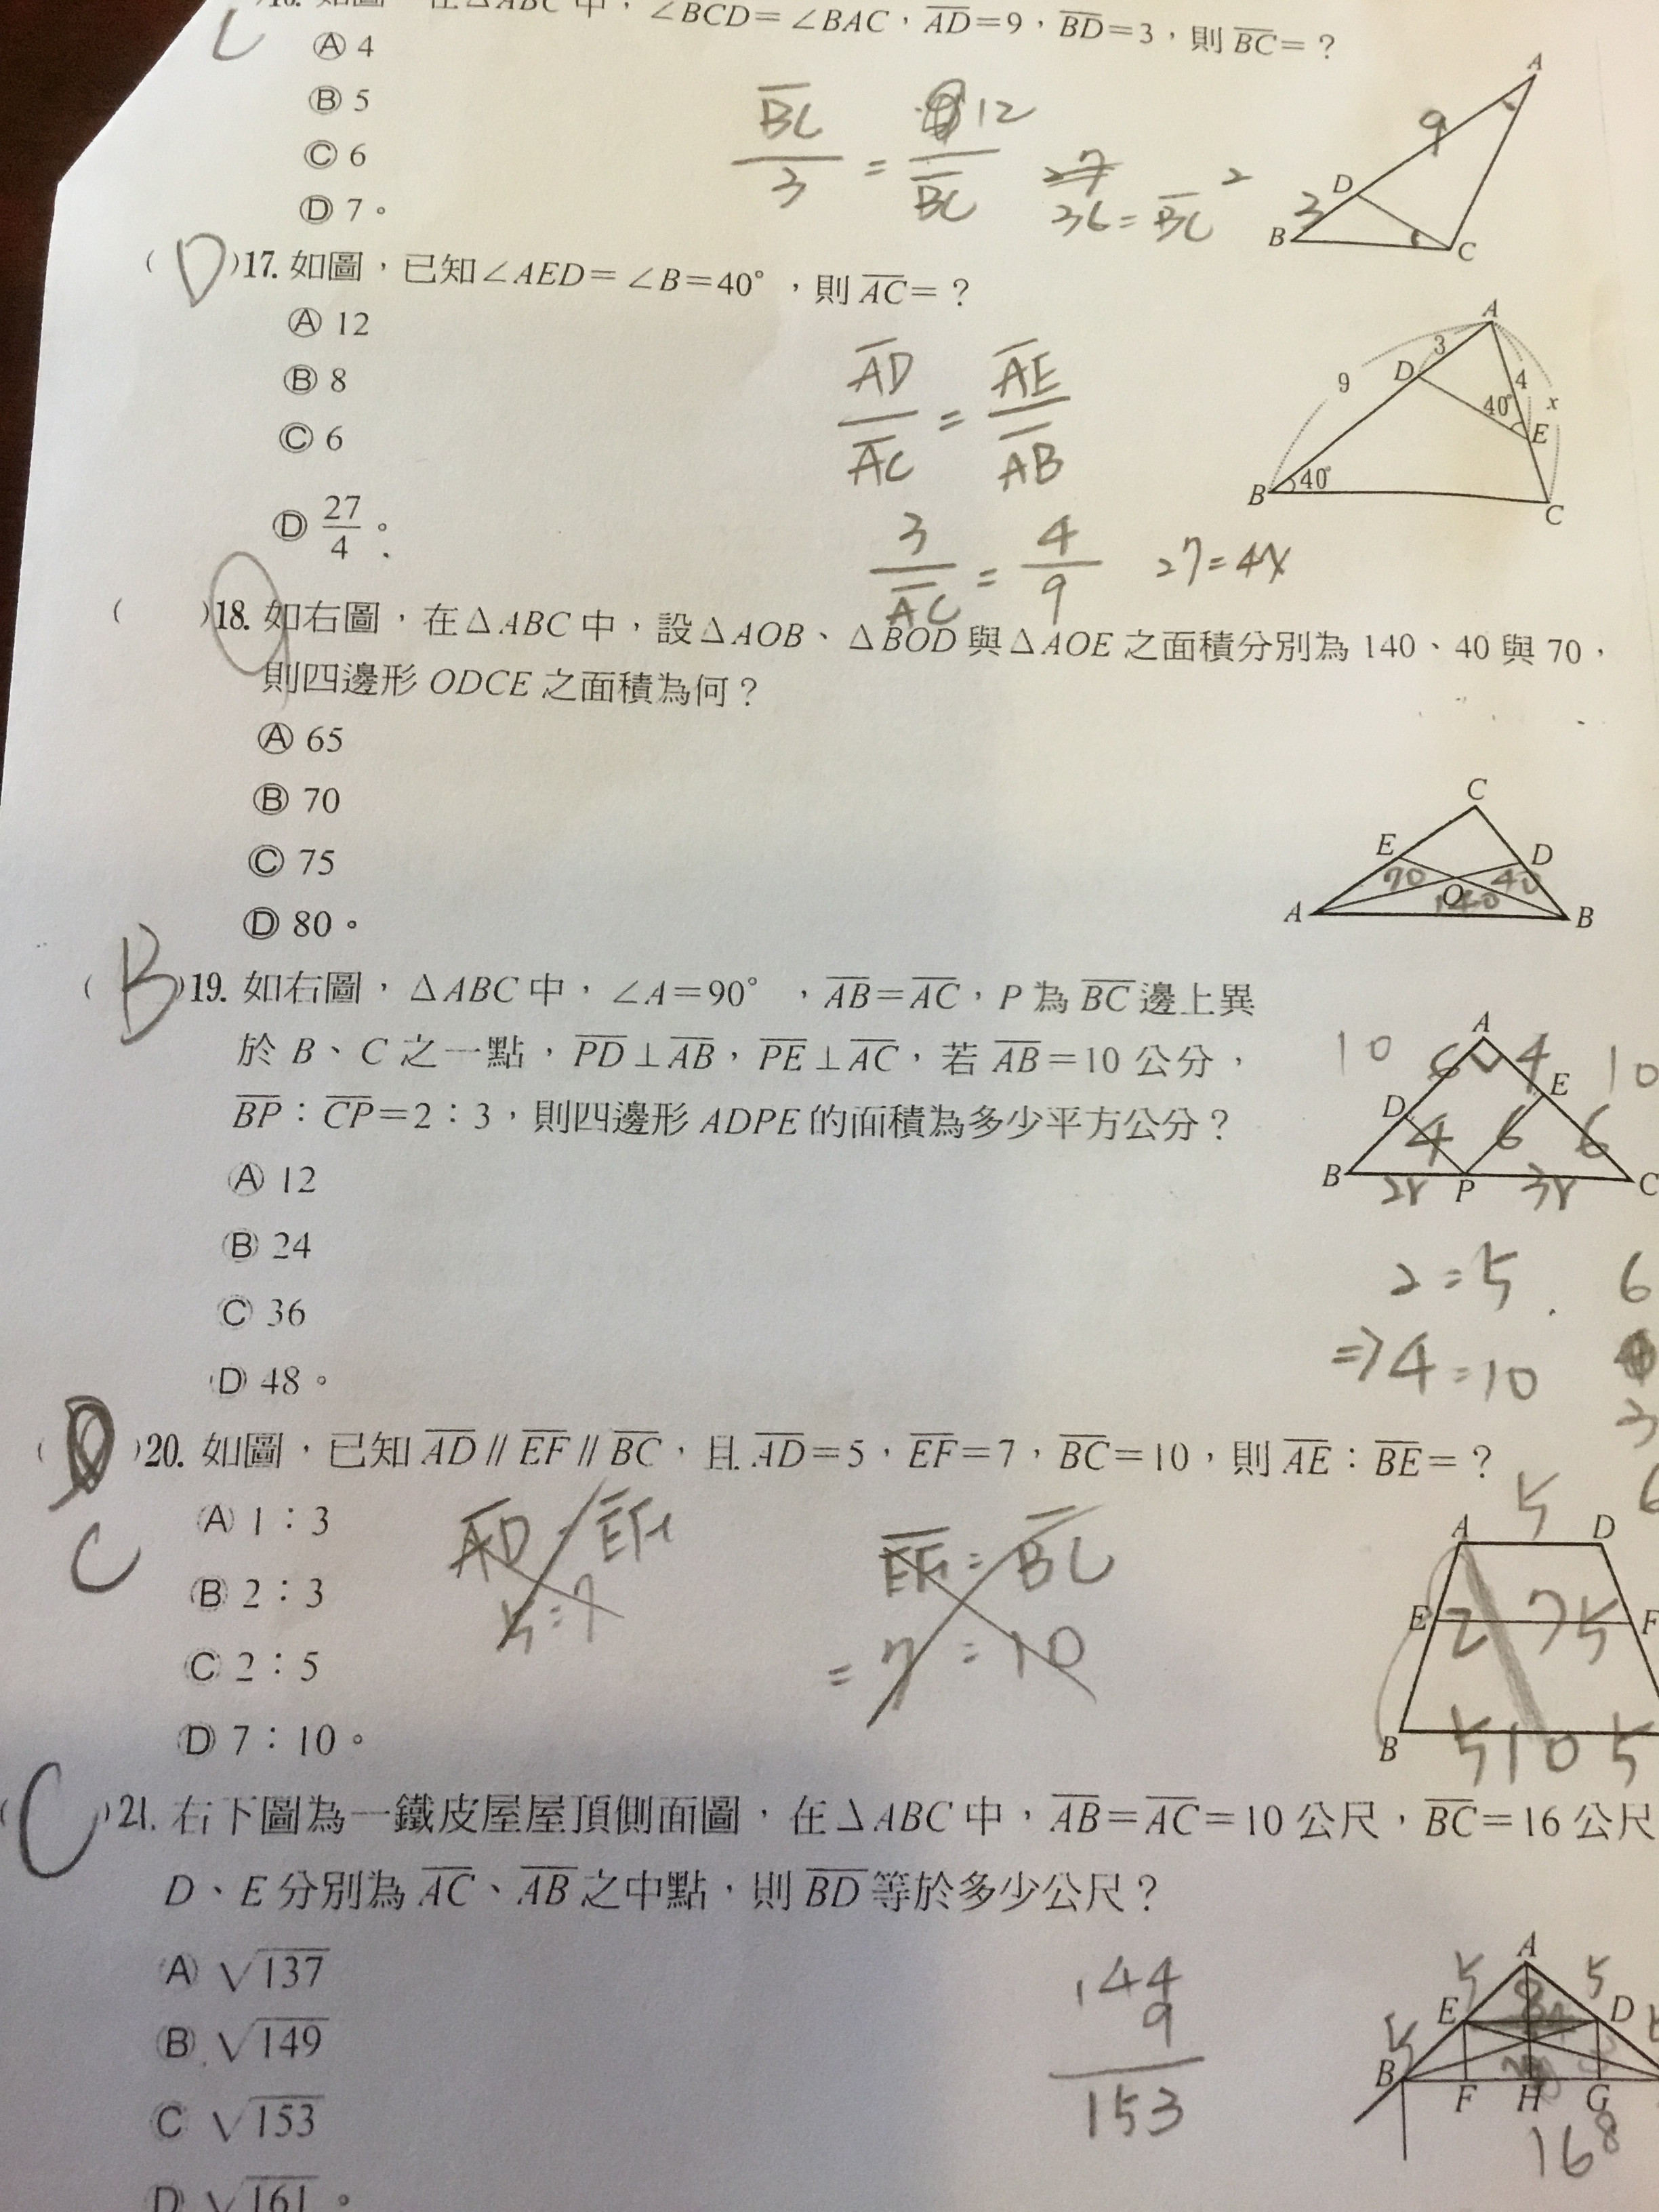 16. 如圖，在△ABC 中，∠BCD=∠BAC，AD=9，BD=3，則 BC=？
Ⓐ 4
Ⓑ 5
Ⓒ 6
Ⓓ 7。
BC/3 = 12/BC
27
36=BC²
A
9
D
3
B
C
( D )17. 如圖，已知∠AED=∠B=40°，則 AC=？
Ⓐ 12
Ⓑ 8
Ⓒ 6
Ⓓ 27/4。
AD/AC = AE/AB
3/AC = 4/9 27=4x
A
3
D
9
4
x
40°
E
B
40°
C
( )18. 如右圖，在△ABC 中，設△AOB、△BOD 與△AOE 之面積分別為 140、40 與 70，
則四邊形 ODCE 之面積為何？
Ⓐ 65
Ⓑ 70
Ⓒ 75
Ⓓ 80。
C
E
D
70
O
40
140
A
B
( B )19. 如右圖，△ABC 中，∠A=90°，AB=AC，P 為 BC 邊上異
於 B、C 之一點，PD⊥AB，PE⊥AC，若 AB=10 公分，
BP：CP=2：3，則四邊形 ADPE 的面積為多少平方公分？
Ⓐ 12
Ⓑ 24
Ⓒ 36
Ⓓ 48。
A
10 6 4 10
E
D
4 6 6
B 2r P 3r C
2=5
⇒4=10
6
3
( )20. 如圖，已知 AD∥EF∥BC，且 AD=5，EF=7，BC=10，則 AE：BE=？
C
Ⓐ 1：3
Ⓑ 2：3
Ⓒ 2：5
Ⓓ 7：10。
AD：EF
5：7
EF：BC
=7：10
5
A D
E 2 7 5 F
B 5 10 5
( C )21. 右下圖為一鐵皮屋屋頂側面圖，在△ABC 中，AB=AC=10 公尺，BC=16 公尺
D、E 分別為 AC、AB 之中點，則 BD 等於多少公尺？
Ⓐ √137
Ⓑ √149
Ⓒ √153
Ⓓ √161。
144
9
153
A
5 5
E D
5
B F H G
16 8